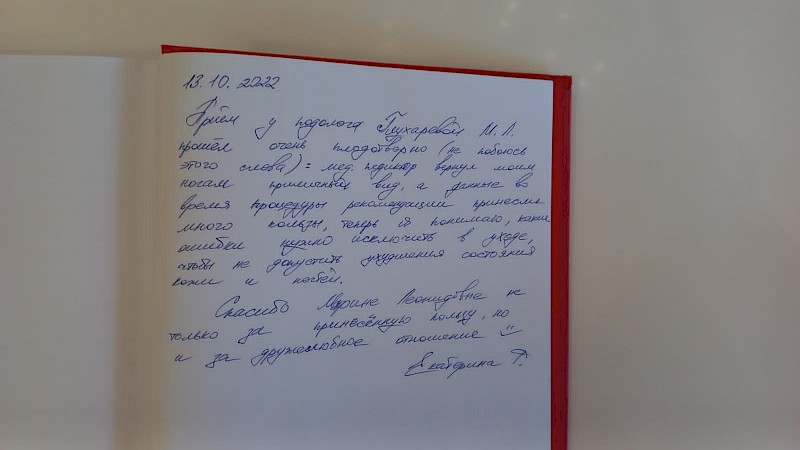 13.10.2022
Приём у подолога Глухаревой М. Л.
прошёл очень плодотворно (не побоюсь
этого слова) = мед. педикюр вернул моим
ногам приличный вид, а данные во
время процедуры рекомендации принесли
много пользы, теперь я понимаю, какие
ошибки нужно исключить в уходе,
чтобы не допустить ухудшения состояния
кожи и ногтей.
Спасибо Марине Леонидовне не
только за принесённую пользу, но
и за дружелюбное отношение
Екатерина Г.